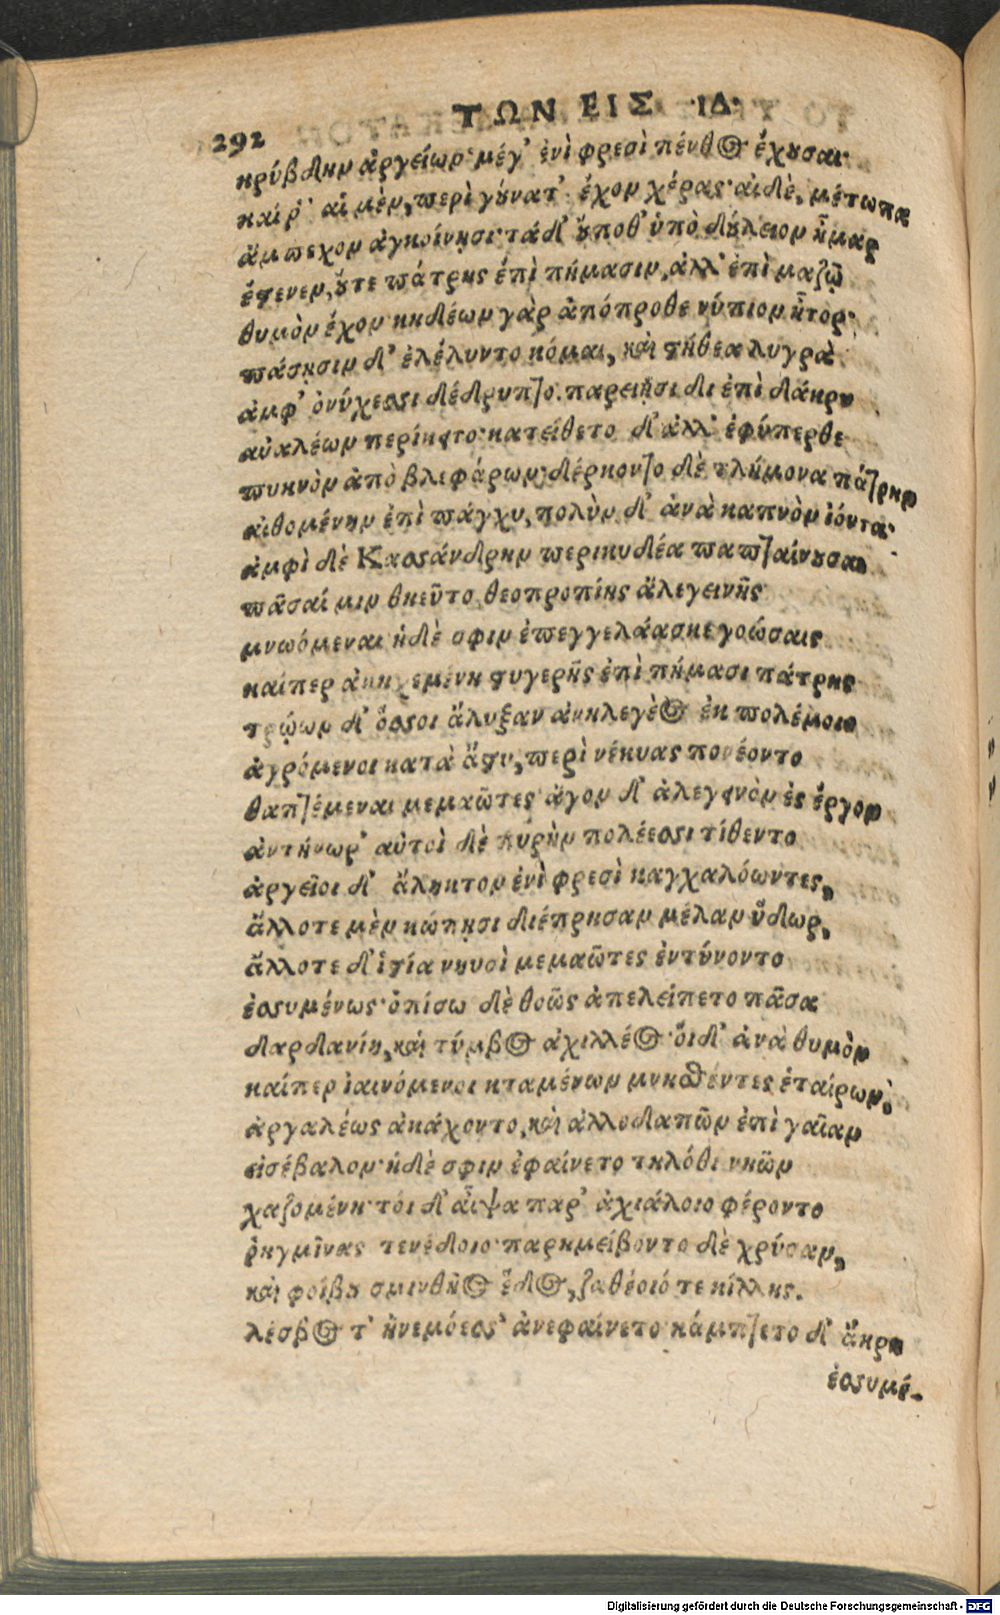 292
ΤΩΝ ΕΙΣ ·ΙΔ·
κρύβδην ἀργείων· μέγ' ἐνὶ φρεσὶ πένθος ἔχουσαι·
καί ῥ' αἱ μὲν, περὶ γούνατ' ἔχον χέρας· αἱ δὲ, μέτωπα
ἄμπεχον ἀγκοίνῃσι· τά δ' οὔποθ' ὑπὸ δούλειον ἦμαρ
ἔστενεν, οὔτε πάτρης ἐπὶ πήμασιν, ἀλλ' ἐπὶ μαζῷ
θυμὸν ἔχον· κηδέων γὰρ ἀπόπροθε νήπιον ἦτορ·
πάσῃσιν δ' ἐλέλυντο κόμαι, καὶ στήθεα λυγρὰ
ἀμφ' ὀνύχεσσι δέδρυπτο. παρειῇσι δι ἐπὶ δάκρυ
αὐαλέων περίκειτο· κατείβετο δ' ἀλλ' ἐφύπερθε
πυκνὸν ἀπὸ βλεφάρων· δέρκοντο δὲ τλήμονα πάτρην
αἰθομένην ἐπὶ πάγχυ, πολὺν δ' ἀνὰ καπνὸν ἰόντα·
ἀμφὶ δὲ Κασσάνδρην περικυδέα παπταίνουσαι
πᾶσαί μιν θηεῦτο θεοπροπίης ἄλεγεινῆς
μνωόμεναι ἡ δὲ σφιν ἐπεγγελάασκε γοώσαις
καίπερ ἀκηχεμένη στυγερῆς ἐπὶ πήμασι πάτρης
τρώων δ' ὅσσοι ἄλυξαν ἀνηλεγέος ἐκ πολέμοιο
ἀγρόμενοι κατὰ ἄστυ, περὶ νέκυας πονέοντο
θαπτέμεναι μεμαῶτες· ἄγον δ' ἀλεγεινὸν ἐς ἔργον
ἀντήνωρ' αὐτοὶ δὲ πυρὴν πολέεσσι τίθεντο
ἀργεῖοι δ' ἄληκτον ἐνὶ φρεσὶ καγχαλόωντες,
ἄλλοτε μὲν κώπῃσι διέπρησαν μέλαν ὕδωρ,
ἄλλοτε δ' ἱστία νηυσὶ μεμαῶτες ἐντύνοντο
ἐσσυμένως· ὀπίσω δὲ θοῶς ἀπελείπετο πᾶσα
δαρδανίη, καὶ τύμβος ἀχιλλέος· οἵ δ' ἀνὰ θυμὸν
καίπερ ἰαινόμενοι κταμένων μνησθέντες ἑταίρων,
ἀργαλέως ἀκάχοντο, καὶ ἀλλοδαπῶν ἐπὶ γαῖαν
εἰσέβαλον· ἡ δὲ σφιν ἐφαίνετο τηλόθι νηῶν
χαζομένη· τοὶ δ' αἶψα παρ' ἀχιάλοιο φέροντο
ῥηγμῖνας τενέδοιο· παρημείβοντο δὲ χρύσαν,
καὶ φοίβου σμινθῆος ἕδος, ζαθέοιό τε κίλλης.
λέσβος τ' ἠνεμόεσσ' ἀνεφαίνετο κάμπτετο δ' ἄκρη
ἐσσυμέ-
Digitalisierung gefördert durch die Deutsche Forschungsgemeinschaft - DFG